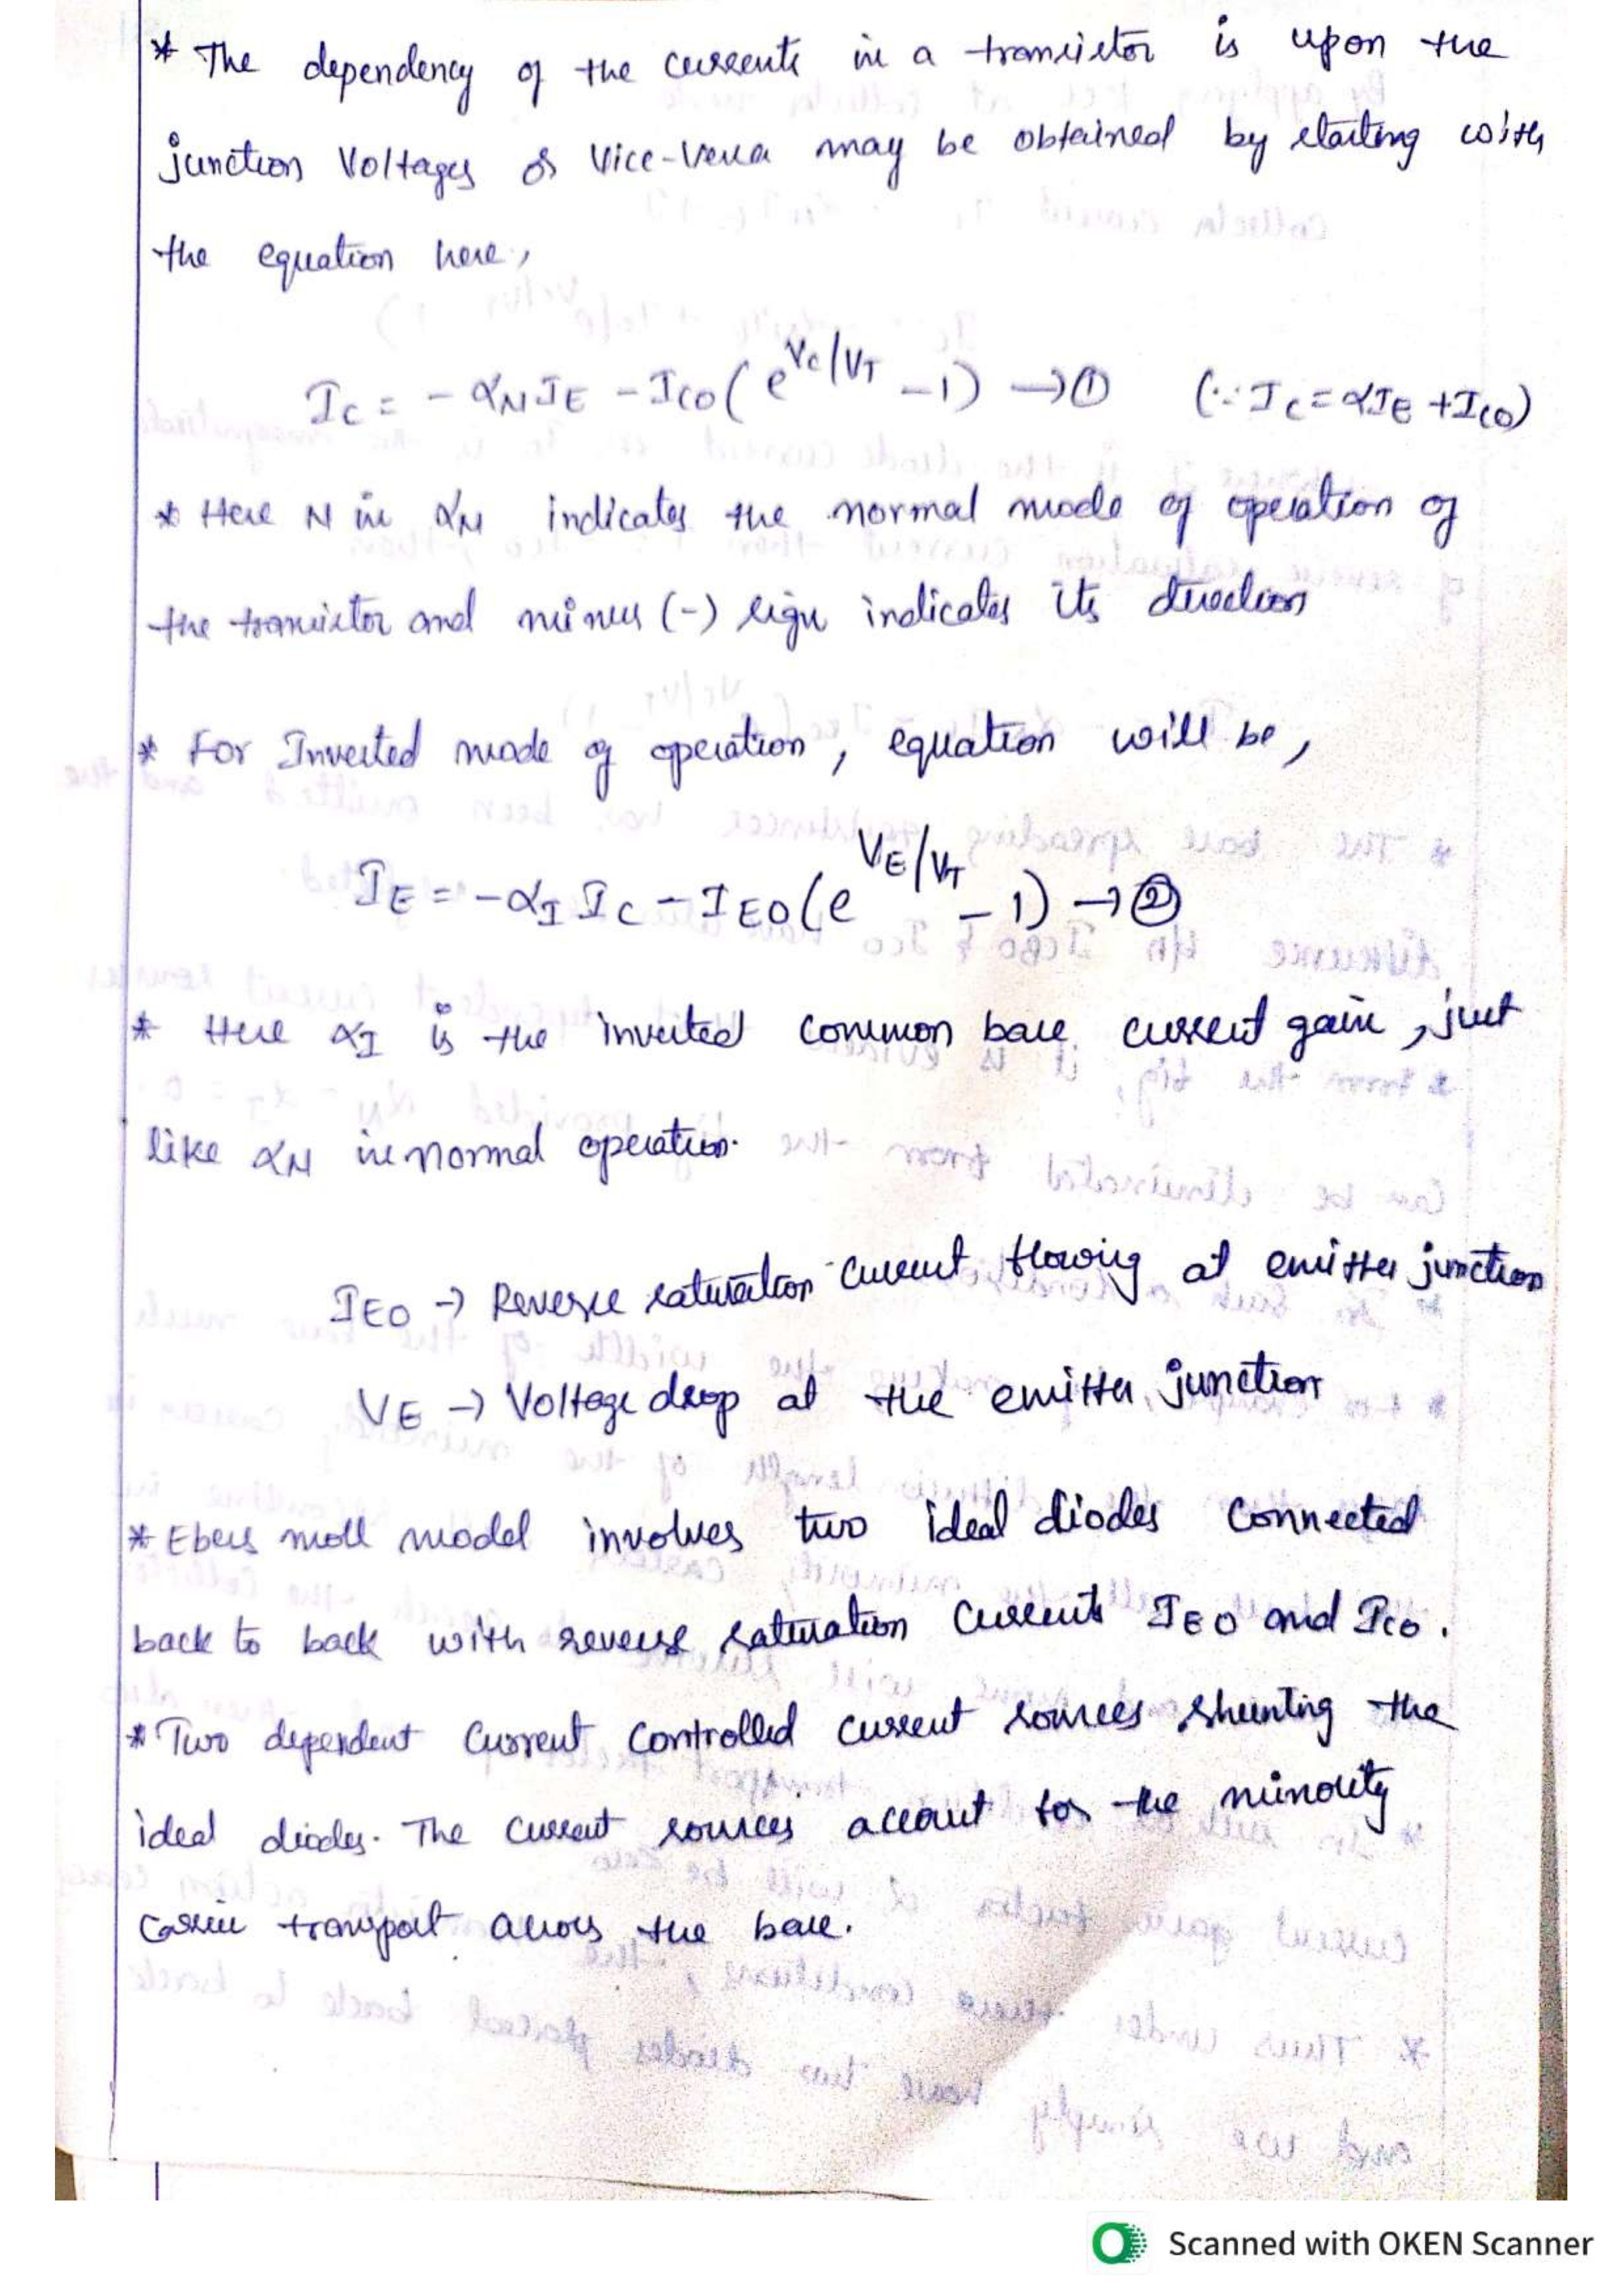 * The dependency of the currents in a transistor is upon the
junction Voltages or Vice-Versa may be obtained by starting with
the equation here,
I_C = - α_N I_E - I_CO ( e^{V_C/V_T} - 1) → ① (∵ I_C = αI_E + I_CO)
* Here N in α_N indicates the normal mode of operation of
the transistor and minus (-) sign indicates its direction
* For Inverted mode of operation, equation will be,
I_E = - α_I I_C - I_EO ( e^{V_E/V_T} - 1) → ②
* Here α_I is the inverted common base current gain, just
like α_N in normal operation.
I_EO → Reverse saturation current flowing at emitter junction
V_E → Voltage drop at the emitter junction
* Ebers moll model involves two ideal diodes Connected
back to back with reverse saturation Currents I_EO and I_CO.
* Two dependent Current Controlled Current sources shunting the
ideal diodes. The Current sources account for the minority
carrier transport across the base.
Scanned with OKEN Scanner